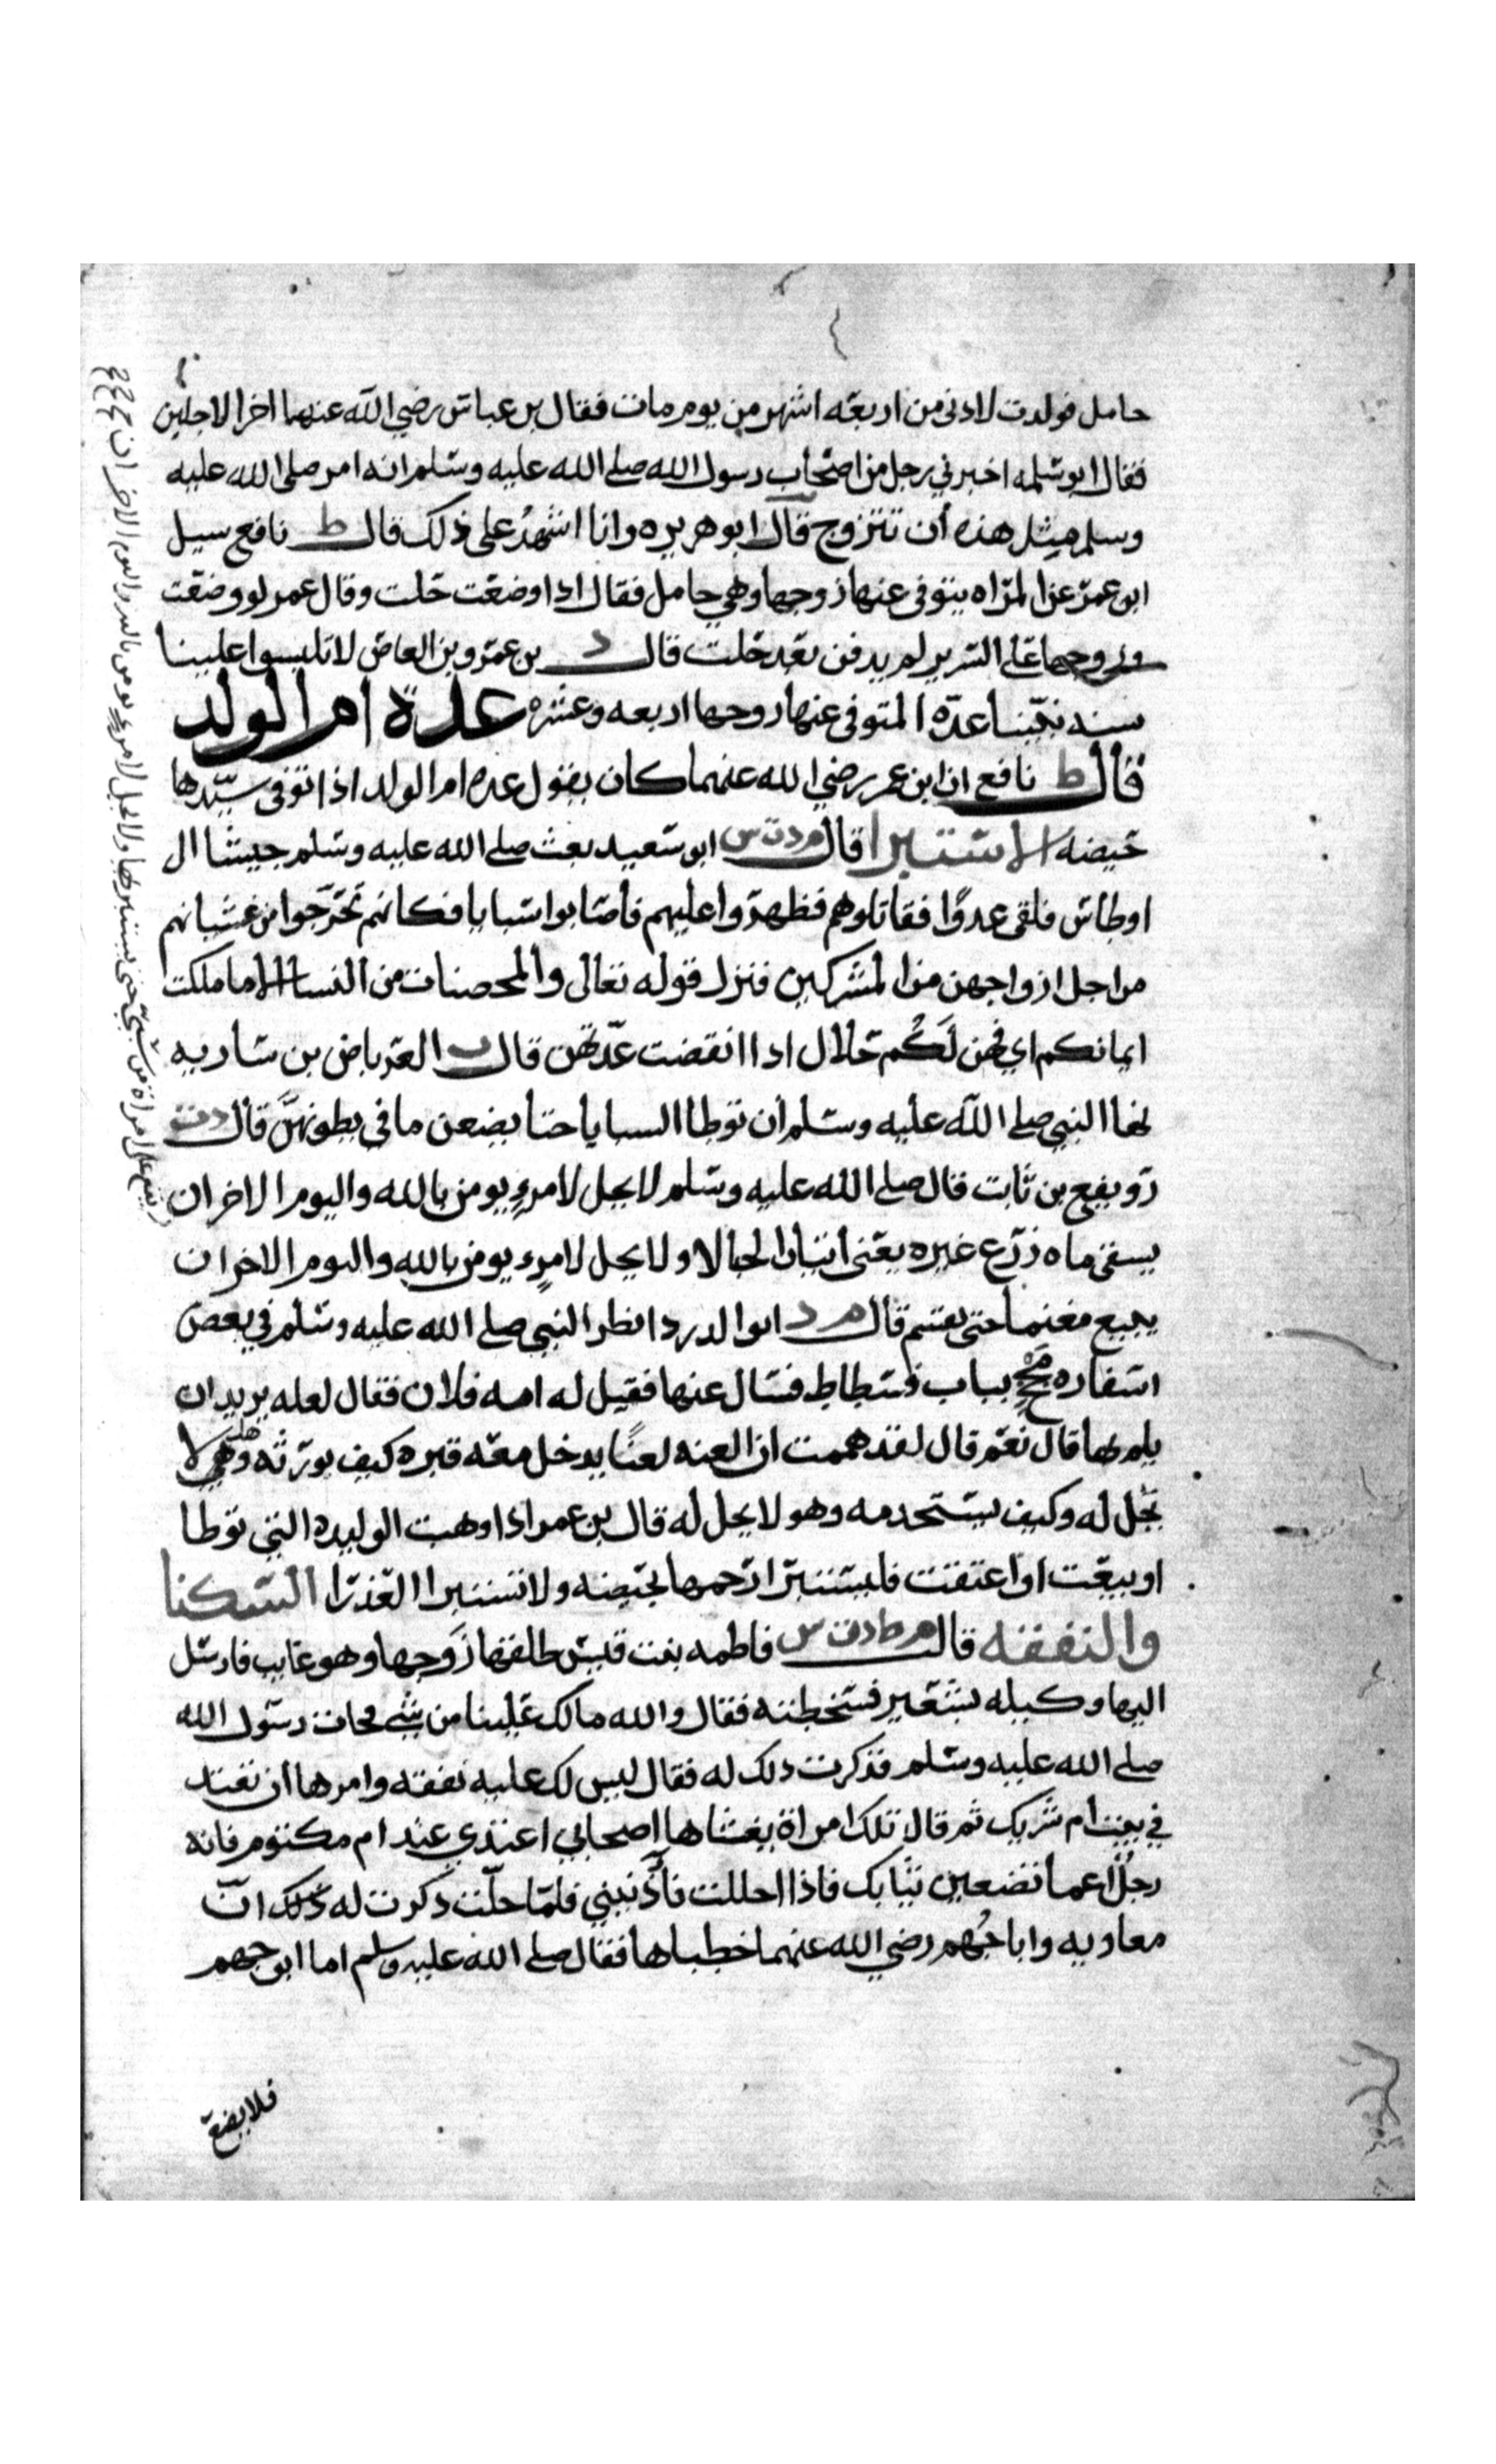 حامل فولدت لادنى من اربعه اشهر من يوم مات فقال بن عباس رضي الله عنهما اخر الاجلين
فقال ابو سلمه اخبرني رجل من اصحاب رسول الله صلى الله عليه وسلم انه امر صلى الله عليه
وسلم مثل هذه أن تتزوج قال ابو هريره وانا اشهدُ على ذلك قال ط نافع سيل
ابن عمر عن المراه يتوفى عنها زوجها وهي حامل فقال اذا وضعت حلت وقال عمر لو وضعت
وزوجها على السرير لم يدفن بعد حلت قال د بن عمرو بن العاص لا تلبسوا علينا
سنه نبينا عدّه المتوفى عنها زوجها اربعه وعشره عدة ام الولد
قال ط نافع ان ابن عمر رضي الله عنهما كان يقول عده ام الولد اذا توفى سيّدها
حيضه الاستبرا قال م د ت س ابو سعيد بعث صلى الله عليه وسلم جيشا ال
اوطاس فلقى عدوًا فقاتلوهم فظهروا عليهم فأصابوا سبايا فكانهم تحرّجوا من غشيانهم
من اجل ازواجهن من المشركين فنزل قوله تعالى والمحصنات من النسا الا ما ملكت
ايمانكم اي فهن لَكُم حلال اذا انقضت عدّتهن قال ت العرباض بن ساريه
نها النبي صلى الله عليه وسلم أن توطا السبايا حتا يضعن ما في بطونهنَّ قال د ت
رويفع بن ثابت قال صلى الله عليه وسلم لا يحل لامرءٍ يومن بالله واليوم الاخر ان
يسقى ماه زرع غيره يعنى اتيان الحبالا ولا يحل لامرء يومن بالله واليوم الاخر ان
يبيع مغنما حتى يقسم قال م د ابو الدردا نظر النبي صلى الله عليه وسلم في بعض
اسفاره مُجحٍ بباب فسطاط فسال عنها فقيل له امه فلان فقال لعله يريد ان
يلم بها قال نعم قال لقد هممت ان العنه لعنًا يدخل معه قبره كيف يورثه وهي لا
تحل له وكيف يستخدمه وهو لا يحل له قال بن عمر اذا وهبت الوليده التي توطا
او بيعت او اعتقت فليستبرا رحمها بحيضه ولا تستبرا العذرا السكنا
والنفقه قال م ط د ت س فاطمه بنت قيس طلقها زَوجها وهو غايب فارسل
اليها وكيله بشعير فسخطته فقال والله مالك علينا من شي فجات رسول الله
صلى الله عليه وسلم فذكرت ذلك له فقال ليس لك عليه نفقه وامرها أن تعتد
في بيت أم شريك ثم قال تلك امراة يغشاها اصحابي اعتدي عند ام مكتوم فانه
رجلٌ اعما تضعين ثيابك فاذا احللت فأذنيني فلمّا حلّت ذكرت له ذلك انّ
معاويه وابا جُهم رضي الله عنهما خطباها فقال صلى الله عليه وسلم اما ابو جهم
فلا يضع